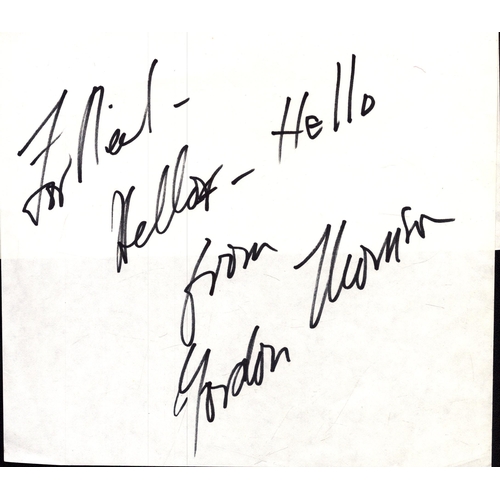 For Neil -
Hello - Hello
from
Gordon Thomson